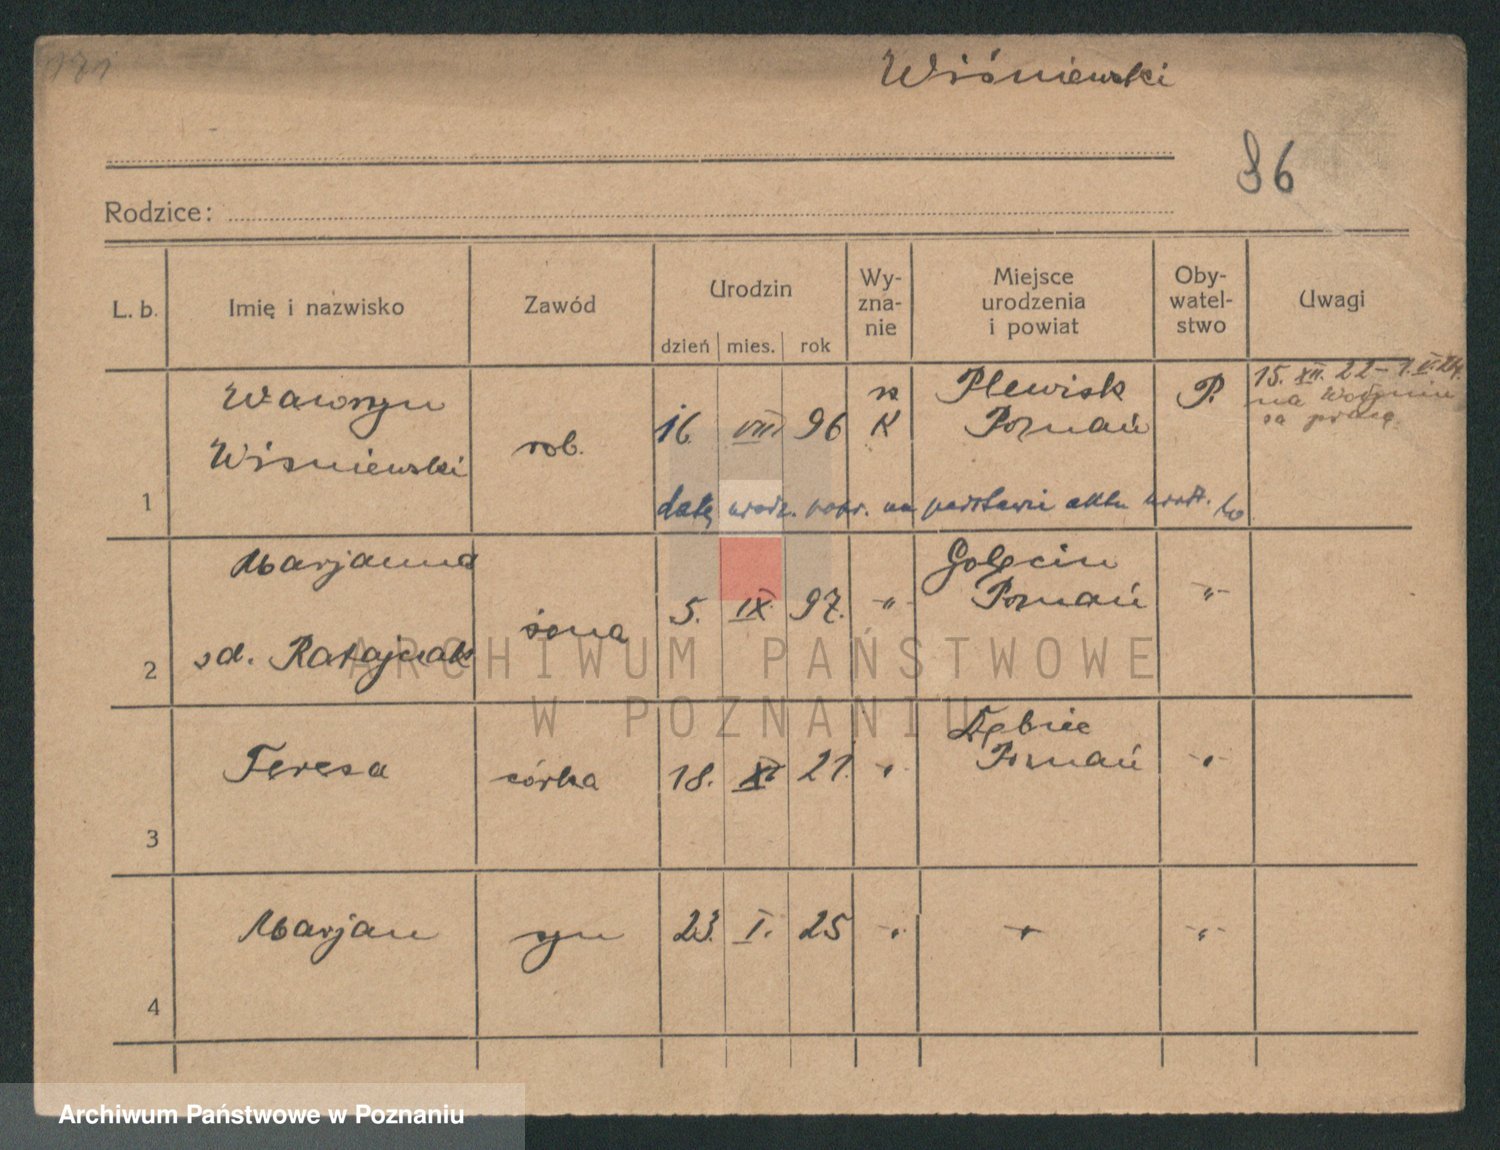 171
Wiśniewski
86
Rodzice:
L. b. Imię i nazwisko Zawód Urodzin dzień mies. rok Wy-zna-nie Miejsce urodzenia i powiat Oby-watel-stwo Uwagi
1 Wawrzyn Wiśniewski rob. 16 VIII 96 rz K Plewisk Poznań P. 15. XII. 22 – 1. V. 24. na Wołyniu za pracą.
datę urodz. popr. na podstawie aktu urodz.
2 Marjanna zd. Ratajczak żona 5. IX. 97. -"- Golęcin Poznań -"-
3 Teresa córka 18. XI 21. -"- Dębiec Poznań -"-
4 Marjan syn 23. I. 25 -"- -"- -"-
ARCHIWUM PAŃSTWOWE
W POZNANIU
Archiwum Państwowe w Poznaniu